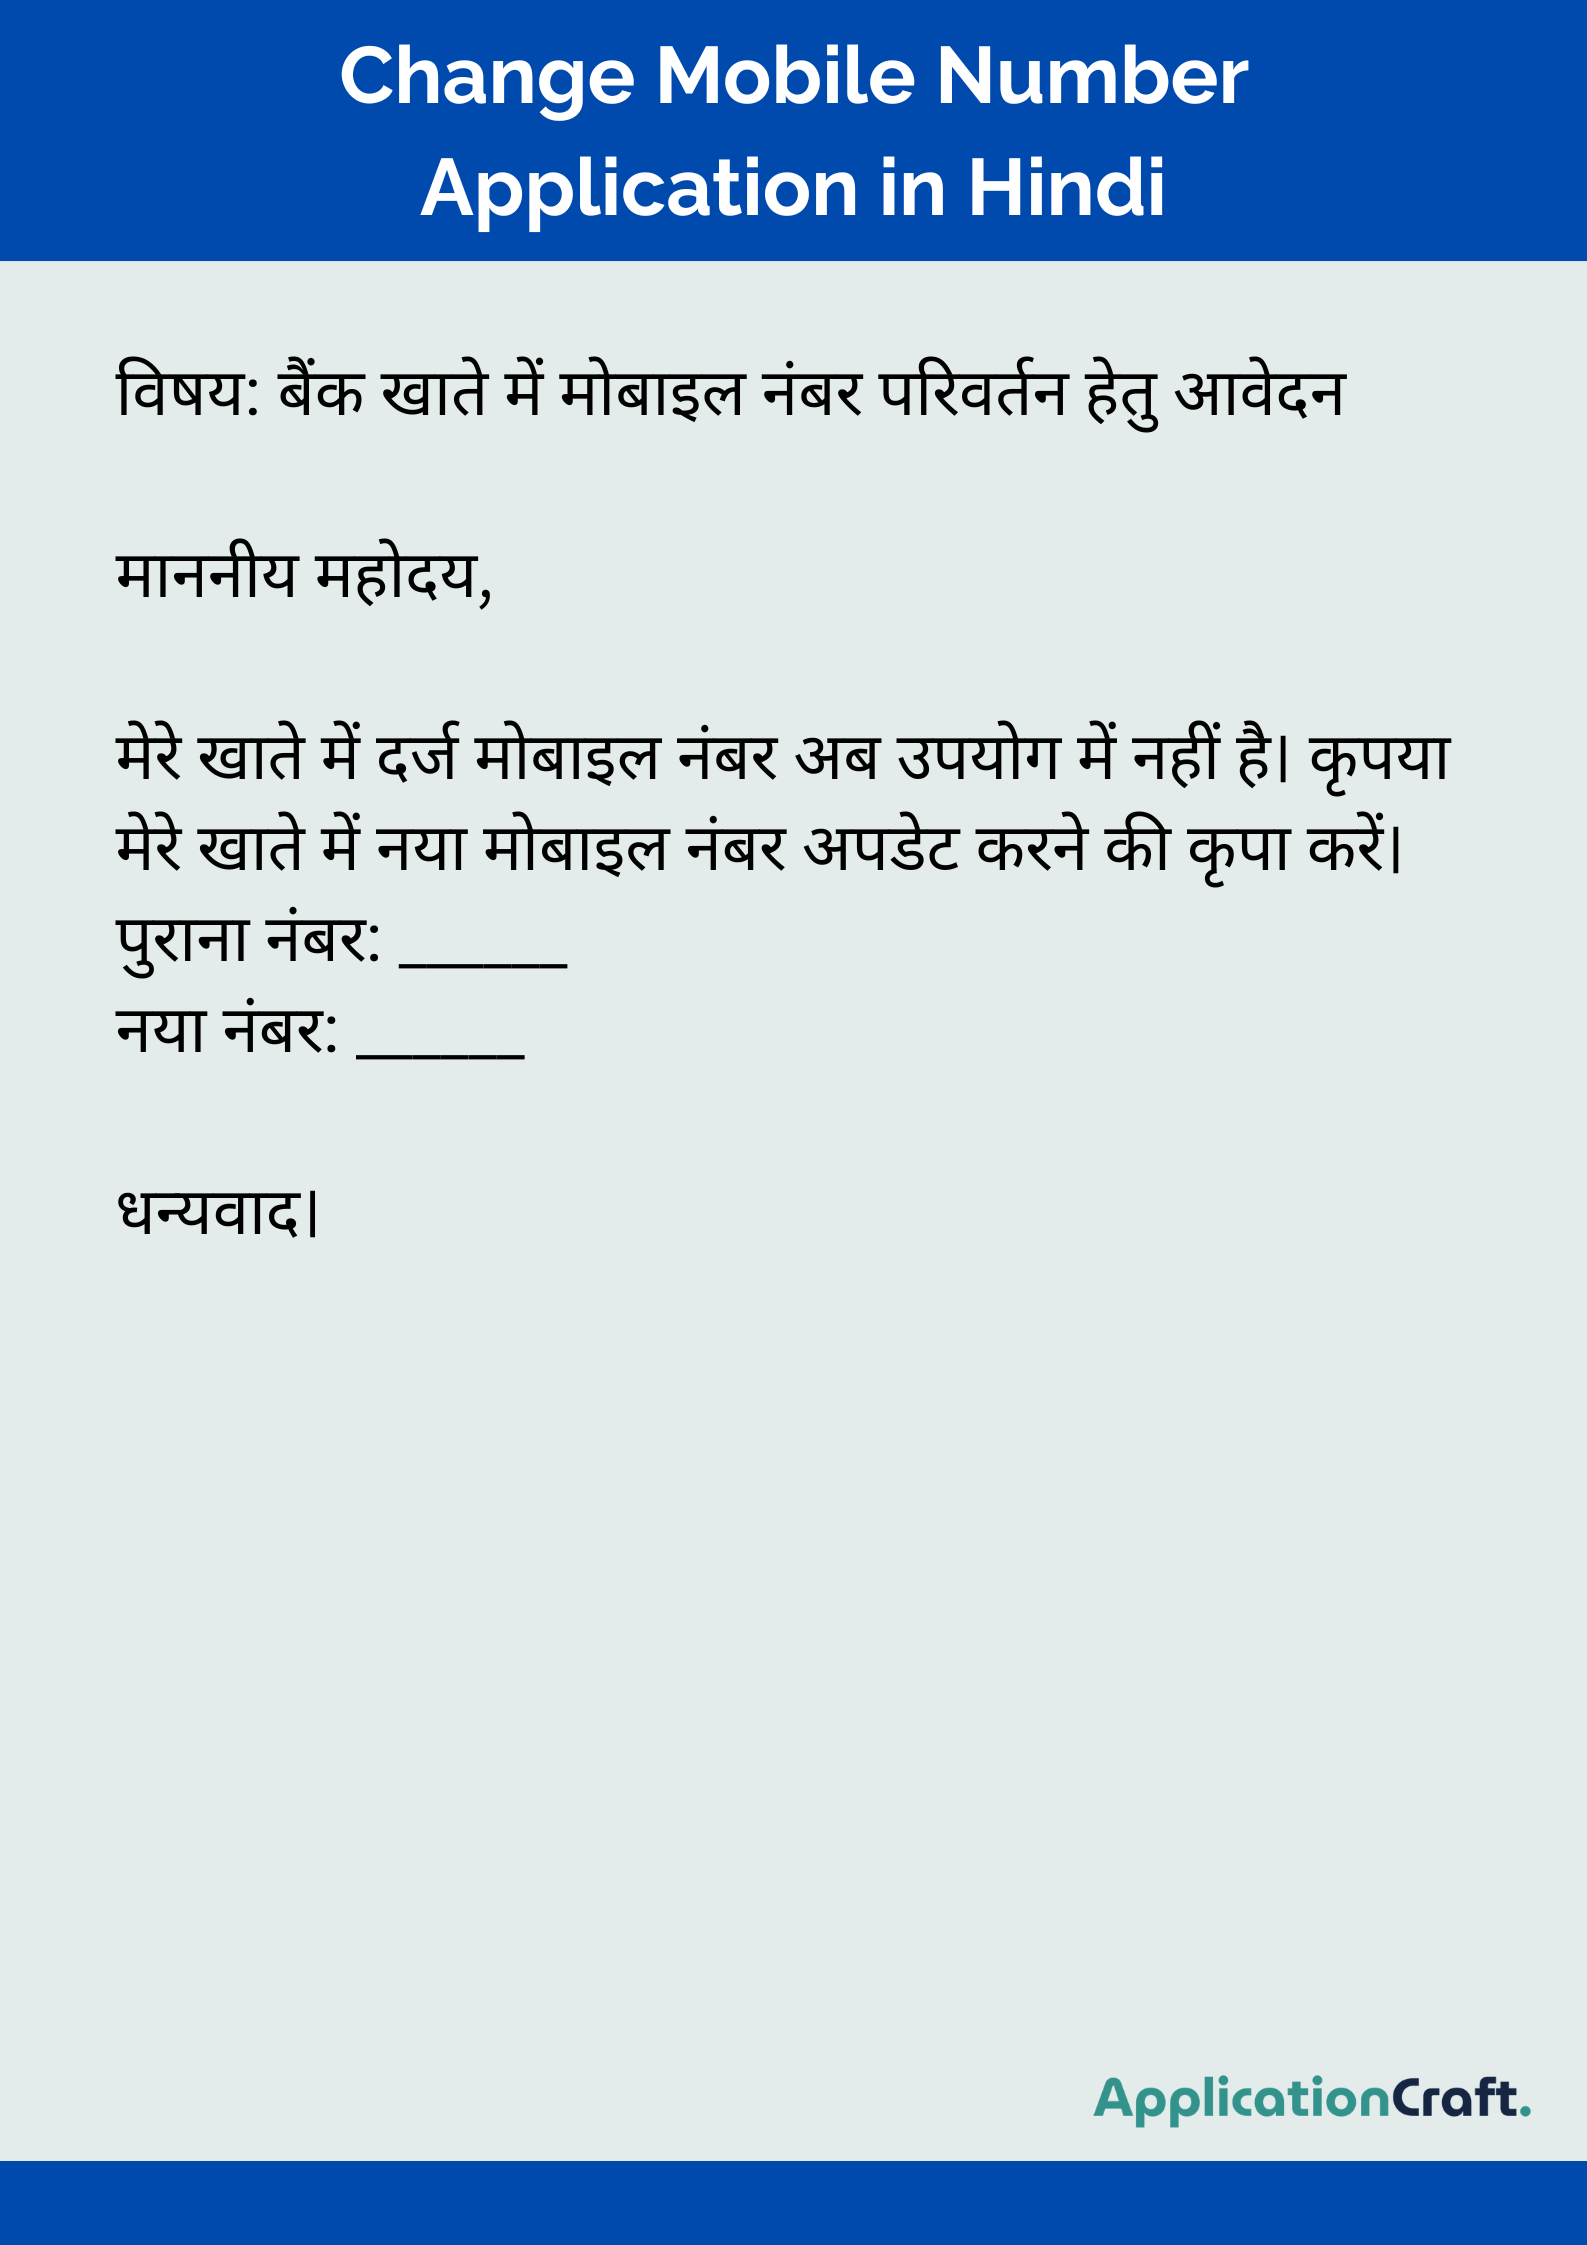 Change Mobile Number
Application in Hindi
विषय: बैंक खाते में मोबाइल नंबर परिवर्तन हेतु आवेदन
माननीय महोदय,
मेरे खाते में दर्ज मोबाइल नंबर अब उपयोग में नहीं है। कृपया
मेरे खाते में नया मोबाइल नंबर अपडेट करने की कृपा करें।
पुराना नंबर: ______
नया नंबर: ______
धन्यवाद।
ApplicationCraft.